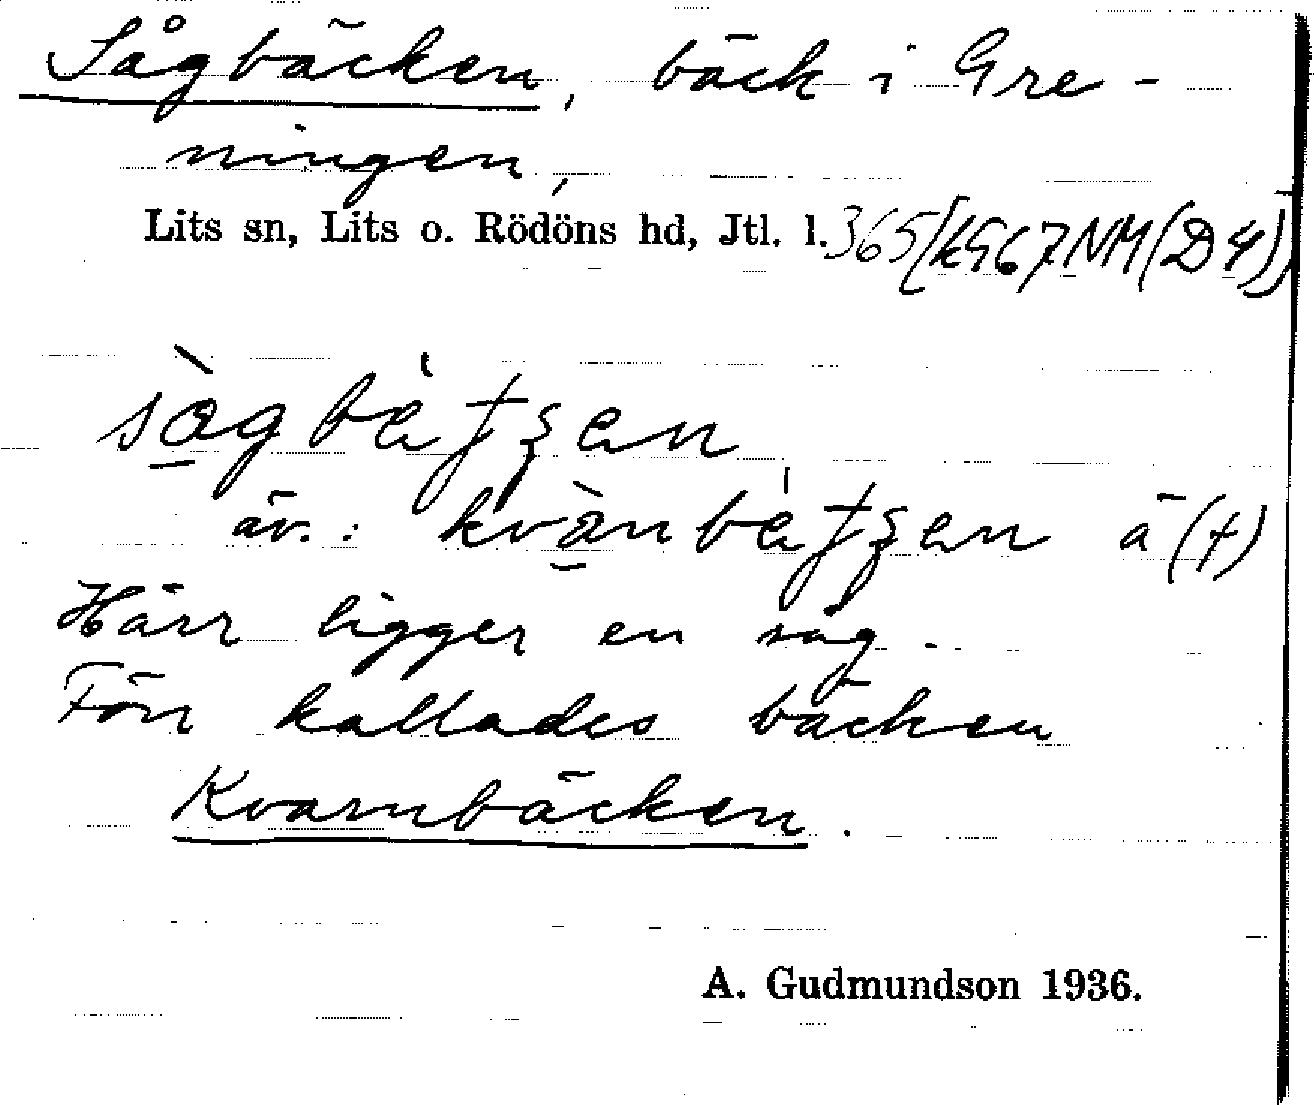 Sågbäcken, bäck i Gre-
ningen,
Lits sn, Lits o. Rödöns hd, Jtl. l. 365 [KG67NM(D4)]
äv.: ä(+)
Härr ligger en såg.
Förr kallades bäcken
Kvarnbäcken.
A. Gudmundson 1936.